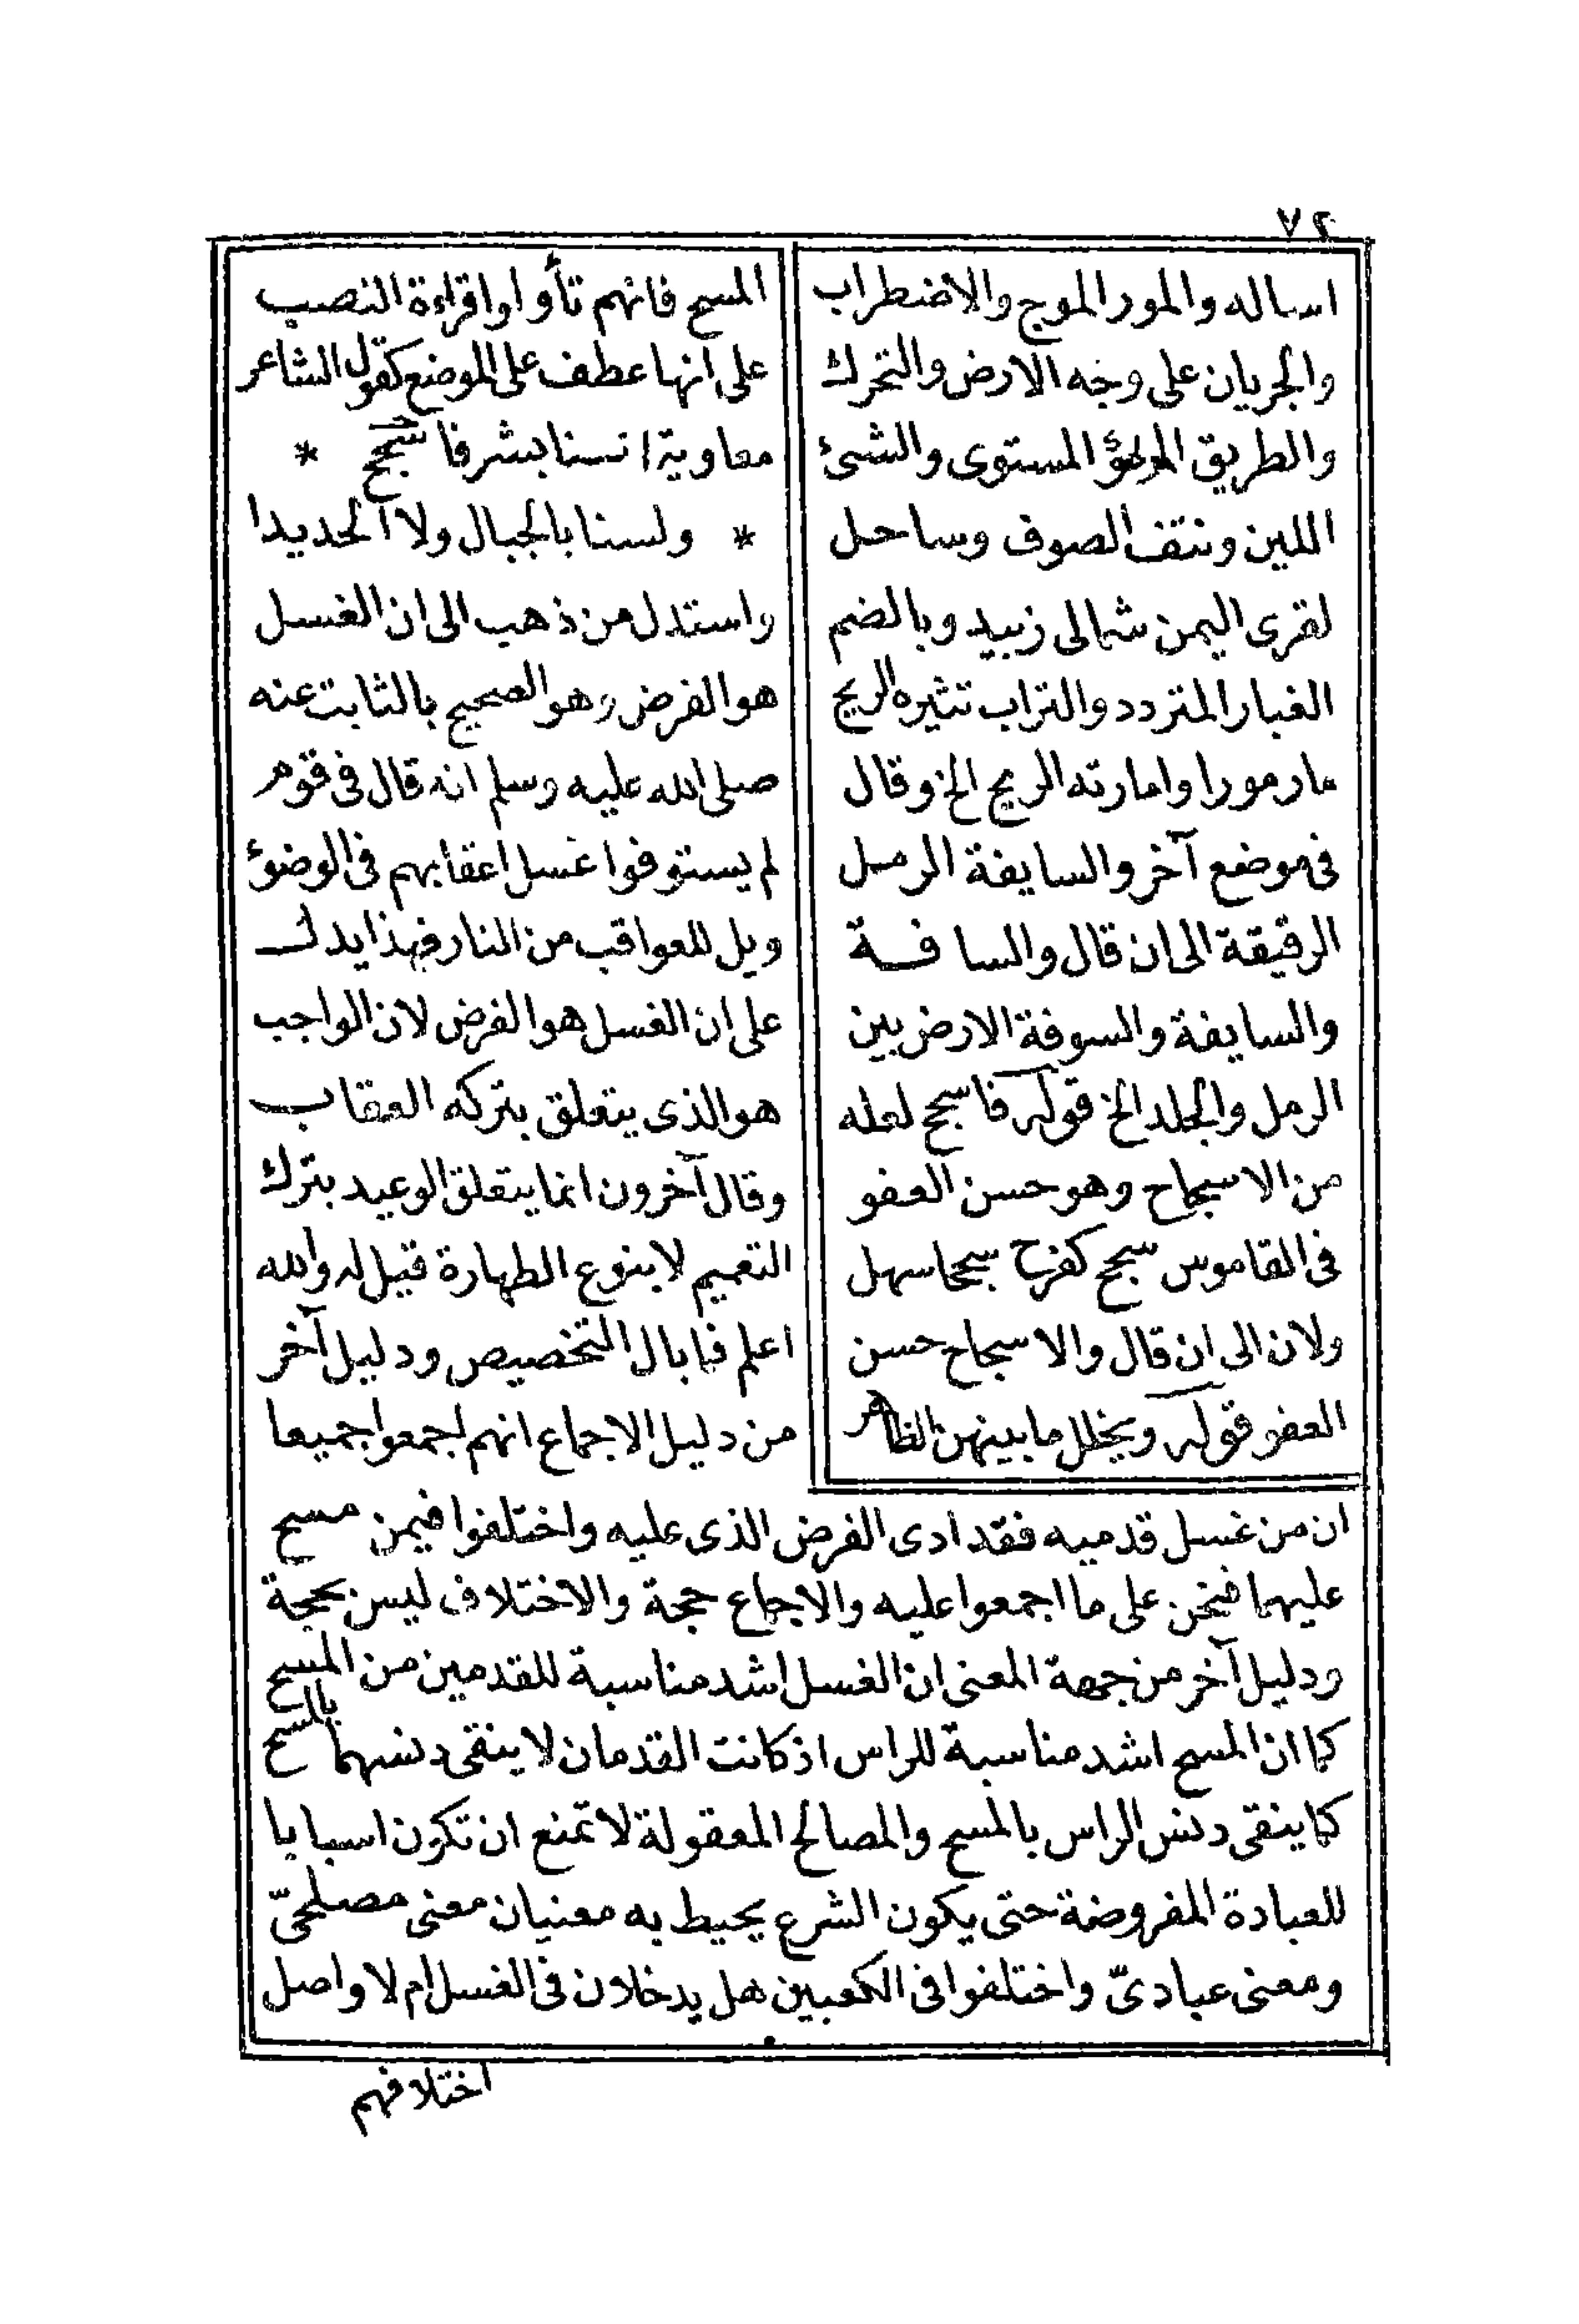 ٧٢
اساله والمور الموج والاضطراب
والجريان على وجه الارض والتحرك
والطريق الموطؤ المستوى والشئ
اللين ونتف الصوف وساحل
لقرى اليمن شمالى زبيد وبالضم
الغبار المتردد والتراب تثيره الريح
مار مورا وامارته الريح الخ وقال
فى موضع آخر والسايفة الرمل
الرقيقة الى ان قال والسافة
والسايفة والسوفة الارض بين
الرمل والجلد الخ قوله فاسجح لعله
من الاسجاح وهو حسن العفو
فى القاموس سجح كفرح سجحا سهل
ولان الى ان قال والاسجاح حسن
العفو قوله ويخلل ما بينهن الظاهر
المسح فانهم تأولوا قراءة النصب
على انها عطف على الموضع كقول الشاعر
معاوية اننا بشر فاسجح *
* ولسنا بالجبال ولا الحديدا
واستدل من ذهب الى ان الغسل
هو الفرض وهو الصحيح بالثابت عنه
صلى الله عليه وسلم انه قال فى قوم
لم يستوفوا غسل اعقابهم فى الوضوء
ويل للعواقب من النار فهذا يدل
على ان الغسل هو الفرض لان الواجب
هو الذى يتعلق بتركه العقاب
وقال آخرون انما يتعلق الوعيد بترك
التعميم لا بنوع الطهارة قيل له والله
اعلم فما بال التخصيص ودليل آخر
من دليل الاجماع انهم اجمعوا جميعا
ان من غسل قدميه فقد ادى الفرض الذى عليه واختلفوا فيمن مسح
عليهما فنحن على ما اجمعوا عليه والاجماع حجة والاختلاف ليس بحجة
ودليل آخر من جهة المعنى ان الغسل اشد مناسبة للقدمين من المسح
كما ان المسح اشد مناسبة للراس اذ كانت القدمان لا ينقى دنسهما بالمسح
كما ينقى دنس الراس بالمسح والمصالح المعقولة لا تمنع ان تكون اسبابا
للعبادة المفروضة حتى يكون الشرع يحيط به معنيان معنى مصلحىّ
ومعنى عبادىّ واختلفوا فى الكعبين هل يدخلان فى الغسل ام لا واصل
اختلافهم